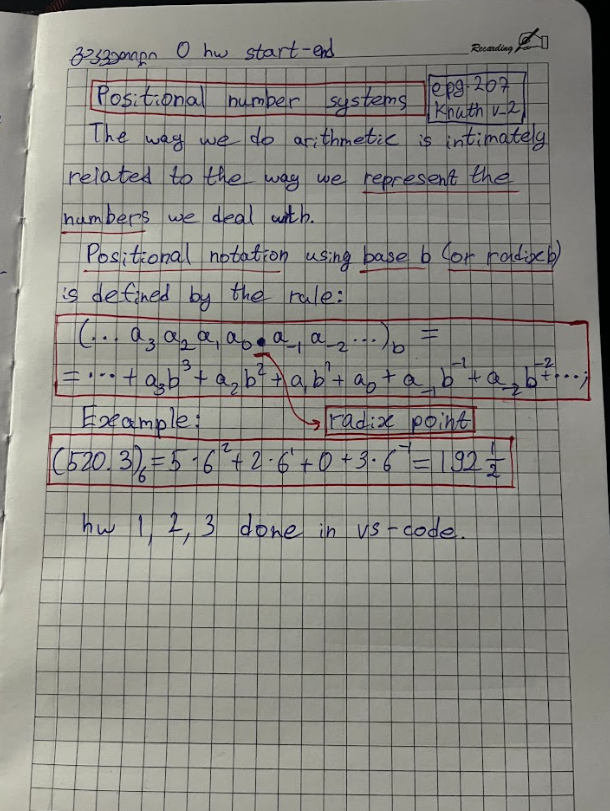 0 hw start-end
Recording
Positional number systems
epg. 207
Knuth v-2
The way we do arithmetic is intimately
related to the way we represent the
numbers we deal with.
Positional notation using base b (or radix b)
is defined by the rule:
(... a₃ a₂ a₁ a₀ . a₋₁ a₋₂ ...)_b =
= ... + a₃b³ + a₂b² + a₁b¹ + a₀ + a₋₁b⁻¹ + a₋₂b⁻² + ...;
Example:
radix point
(520.3)₆ = 5·6² + 2·6¹ + 0 + 3·6⁻¹ = 192 1/2
hw 1, 2, 3 done in vs-code.